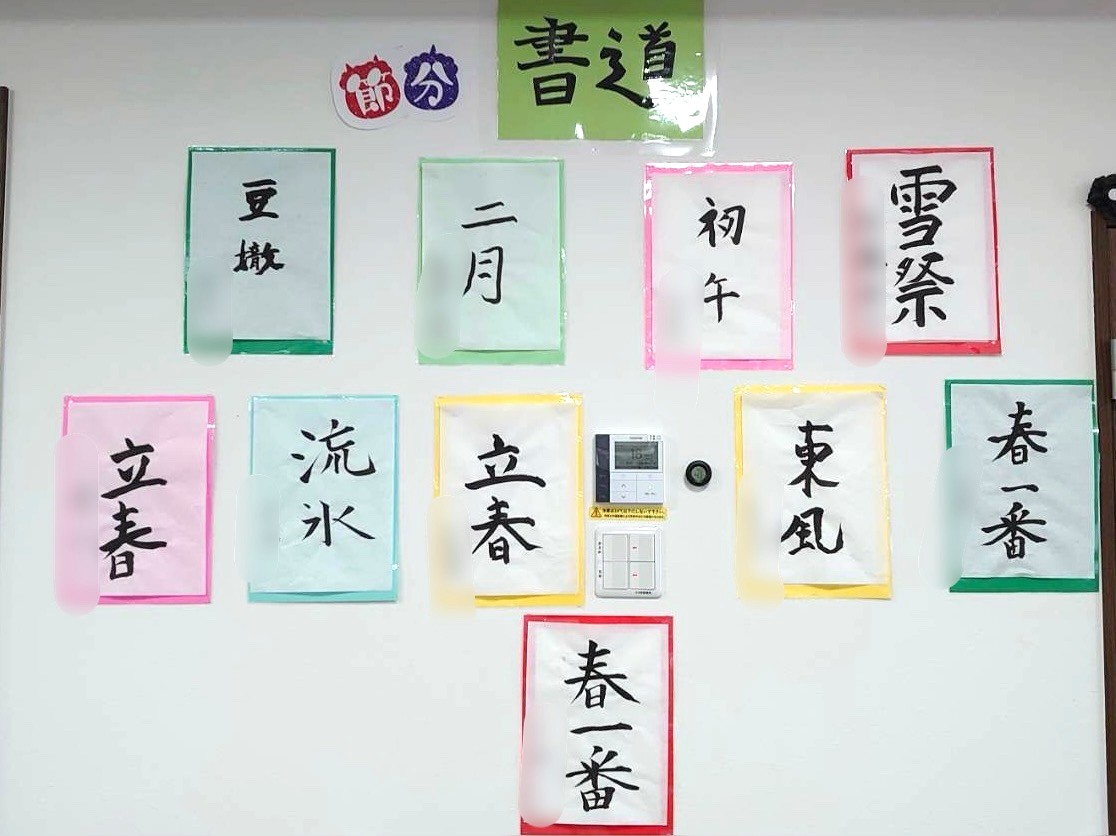 節分
書道
豆撒
二月
初午
雪祭
立春
流氷
立春
東風
春一番
春一番